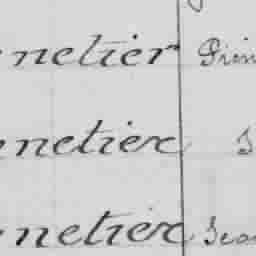 netier Pier
netier
netier Jea